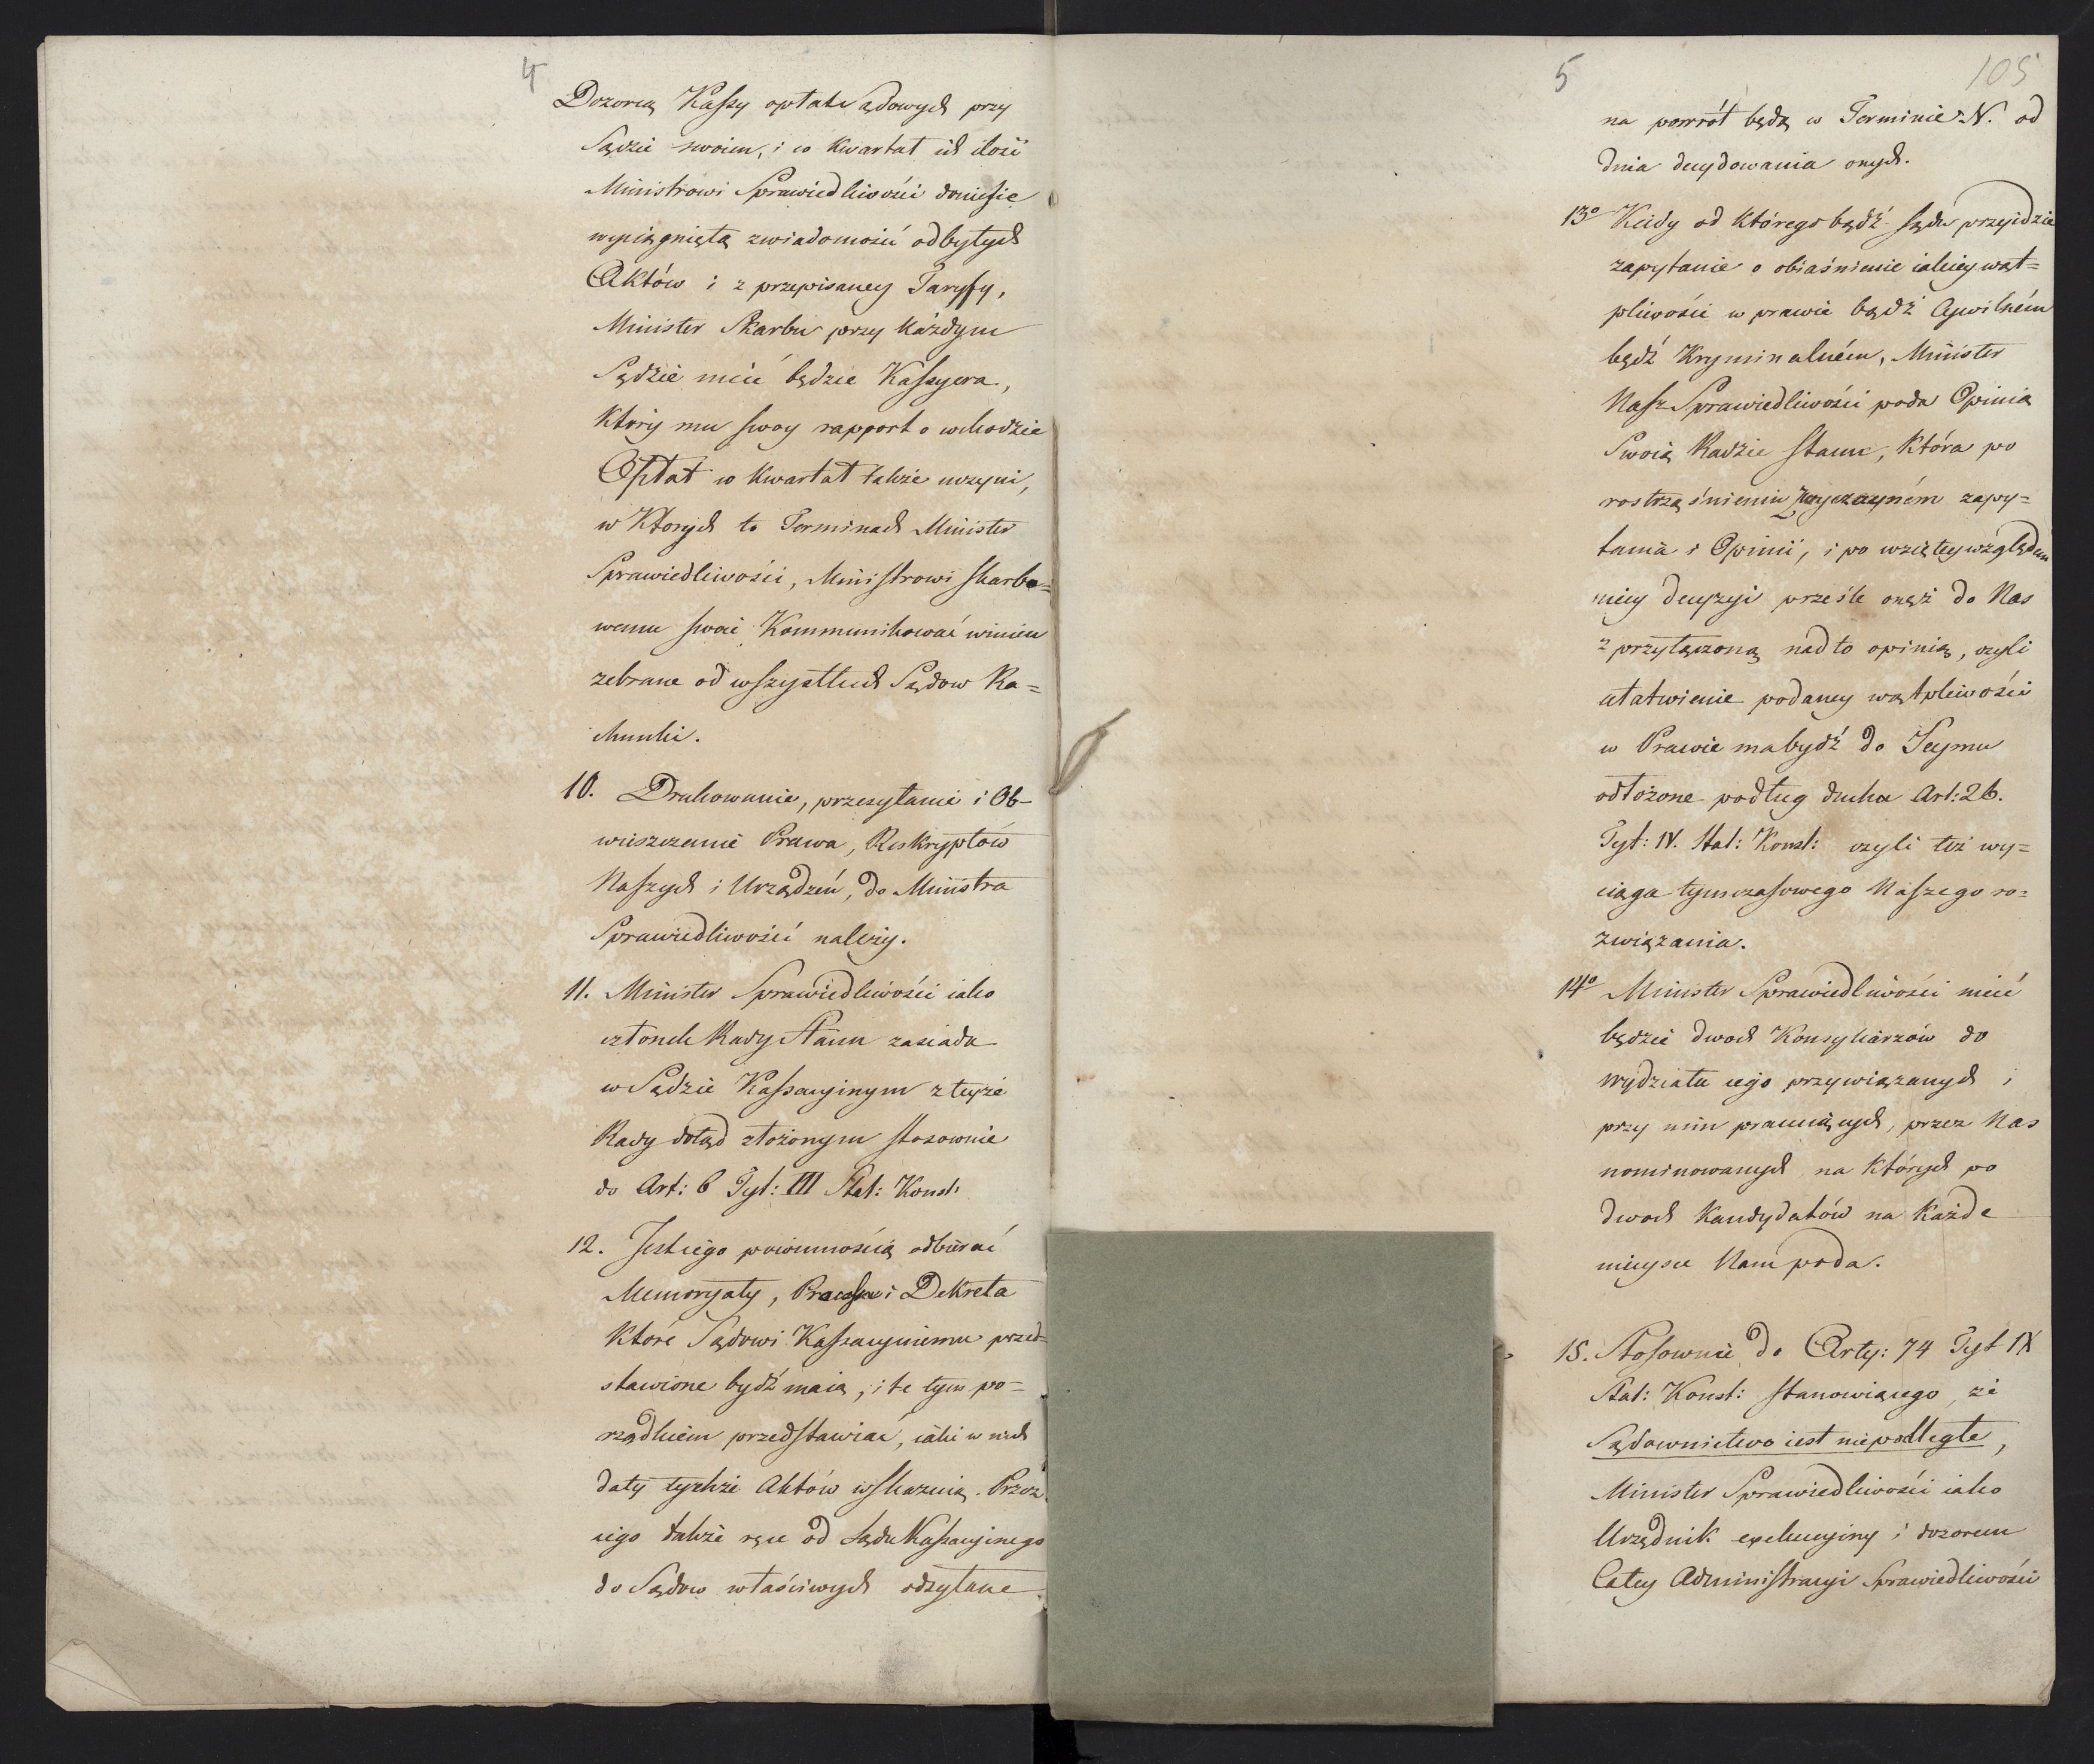 4
Dozorcą Kassy opłat Sądowych przy
Sądzie swoim, i co kwartał ich ilość
Ministrowi Sprawiedliwości doniesie
wyciągniętą z wiadomości odbytych
Aktów i z przepisaney Taryfy,
Minister Skarbu przy każdym
Sądzie mieć będzie Kassyera,
który mu swoy rapport o wchodzie
Opłat co kwartał także uczyni,
w których to Terminach Minister
Sprawiedliwości, Ministrowi skarbo=
wemu swoie Kommunikować winien
zebrane od wszystkich Sądow Ra=
chunki.
10. Drukowanie, przesyłanie i Ob-
wieszczenie Prawa, Reskryptów
Naszych i Urządzeń, do Ministra
Sprawiedliwości należy.
11. Minister Sprawiedliwości iako
członek Rady Stanu zasiada
w Sądzie Kassacyinym z teyże
Rady dotąd złożonym stosownie
do Art: 6 Tyt: III Stat: Konst:
12. Jest iego powinnością odbierać
Memoryały, Processa i Dekreta
które Sądowi Kassacyinemu przed=
stawione bydź maią, i te tym po=
rządkiem przedstawiać, iaki w nich
daty tychże Aktów wskazuią. Przez
iego także ręce od Sądu Kassacyinego
do Sądow właściwych odsyłane
5
105
na powrót będą w Terminie N. od
dnia decydowania onych.
13o Kiedy od którego bądź sądu przyidzie
zapytanie o obiaśnienie iakiey wąt=
pliwości w prawie bądź Cywilném
bądź Kryminalném, Minister
Nasz Sprawiedliwości poda Opinią
Swoią Radzie stanu, która po
rostrząśnieniu zapy=
tania i Opinii, i po wziętey względem
niey decyzyi prześle onęż do Nas
z przyłączoną nadto opinią, czyli
ułatwienie podaney wątpliwości
w Prawie ma bydź do Seymu
odłożone podług ducha Art: 26.
Tyt: IV. Stat: Konst: czyli też wy=
ciąga tymczasowego Naszego ro=
związania.
14o Minister Sprawiedliwości mieć
będzie dwoch Konsyliarzów do
wydziału iego przywiązanych i
przy nim pracuiących, przez Nas
nominowanych na których po
dwoch Kandydatów na każde
mieysce Nam poda.
15. Stosownie do Arty: 74 Tyt IX
Stat: Konst: stanowiącego, że
Sądownictwo iest niepodległe,
Minister Sprawiedliwości iako
Urzędnik exekucyiny i dozorca
Całey Administracyi Sprawiedliwości